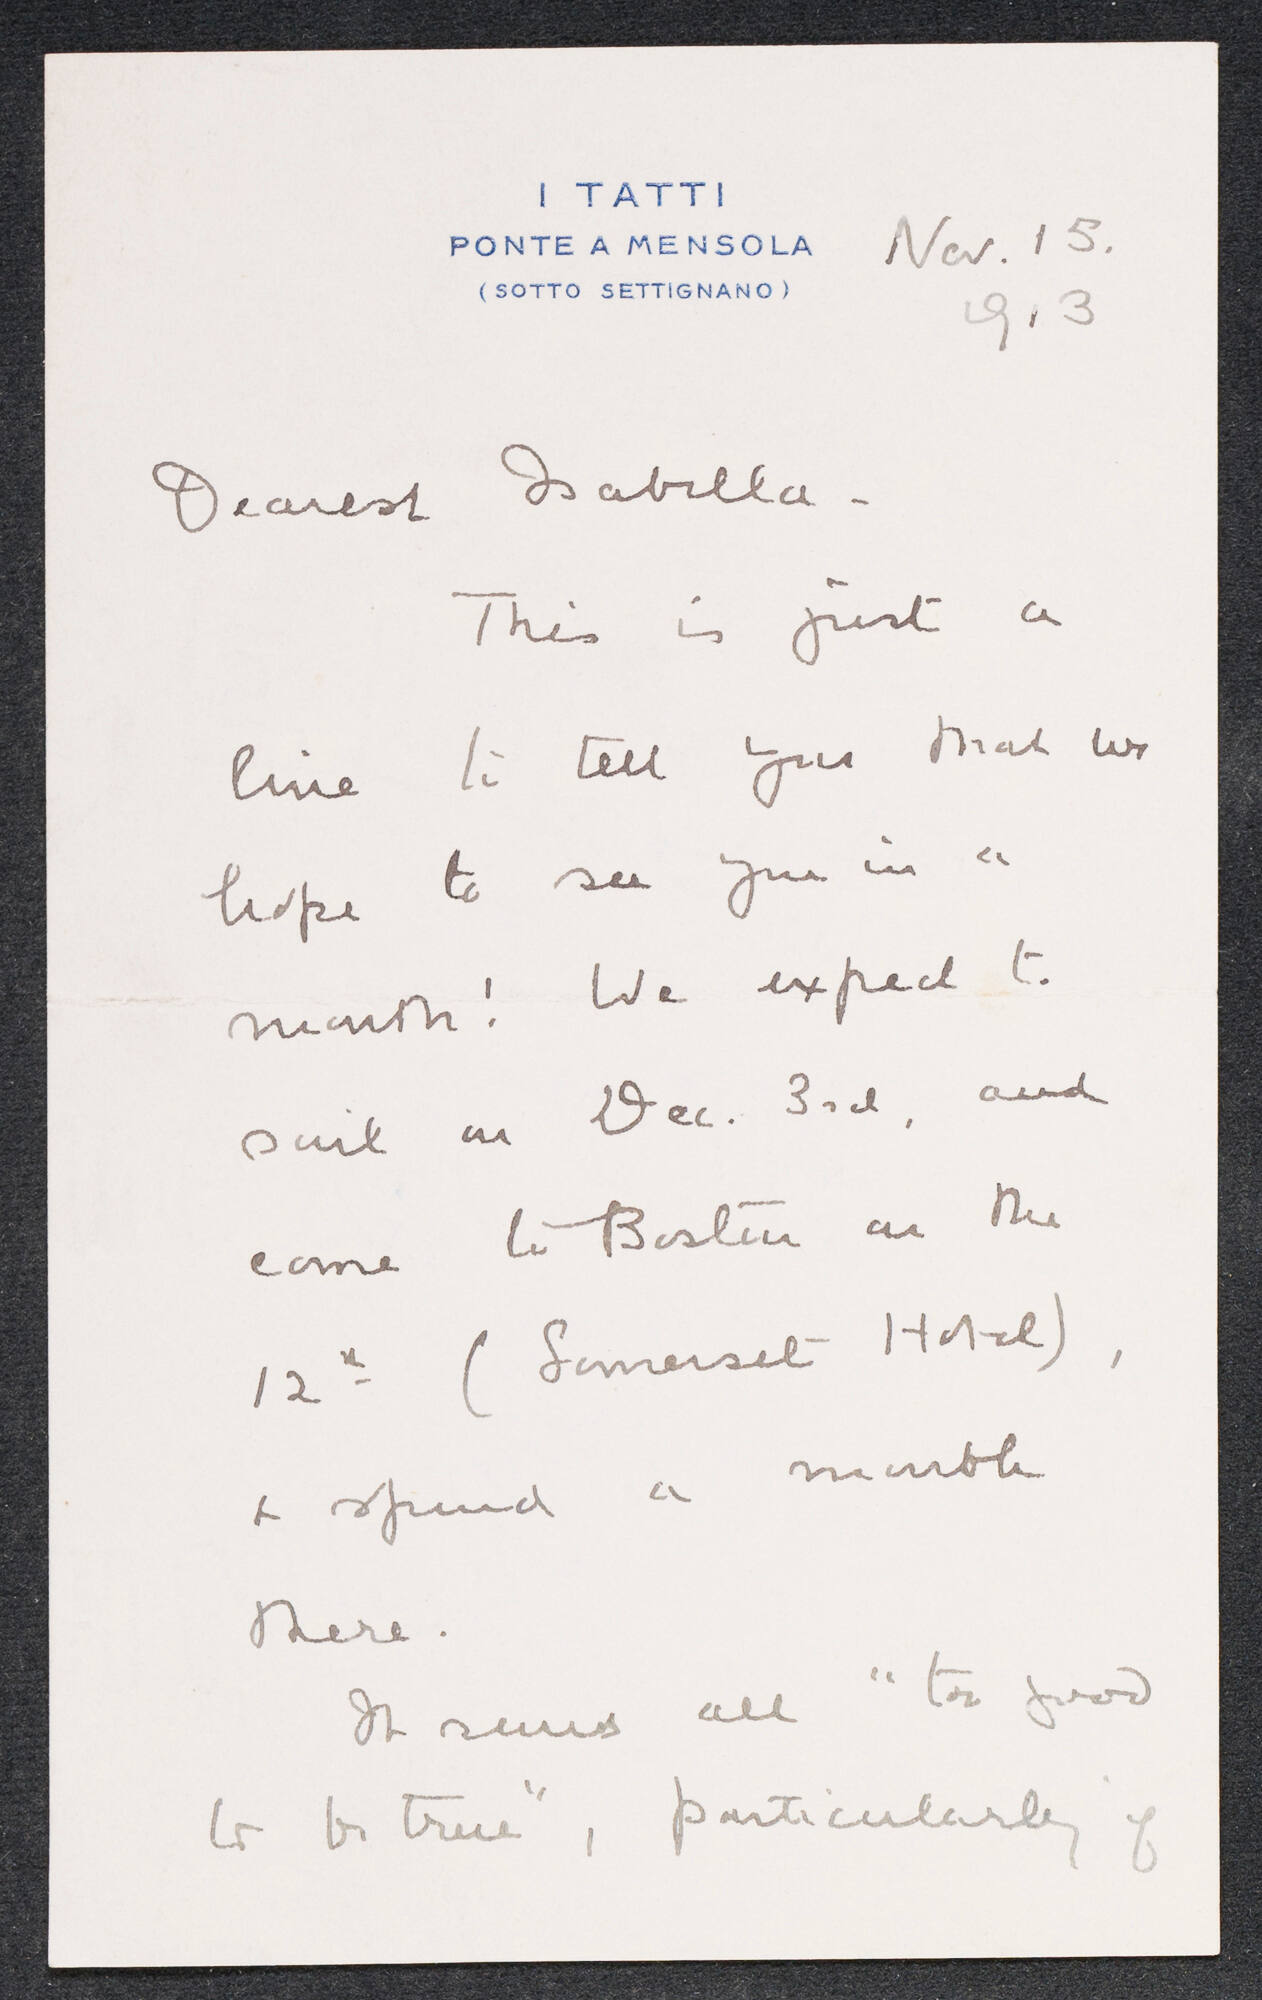 I TATTI
PONTE A MENSOLA
(SOTTO SETTIGNANO)
Nov. 15.
1913
Dearest Isabella -
This is just a
line to tell you that we
hope to see you in a
month! We expect to
sail on Dec. 3rd, and
come to Boston on the
12th (Somerset Hotel),
& spend a month
there.
It seems all "too good
to be true", particularly if